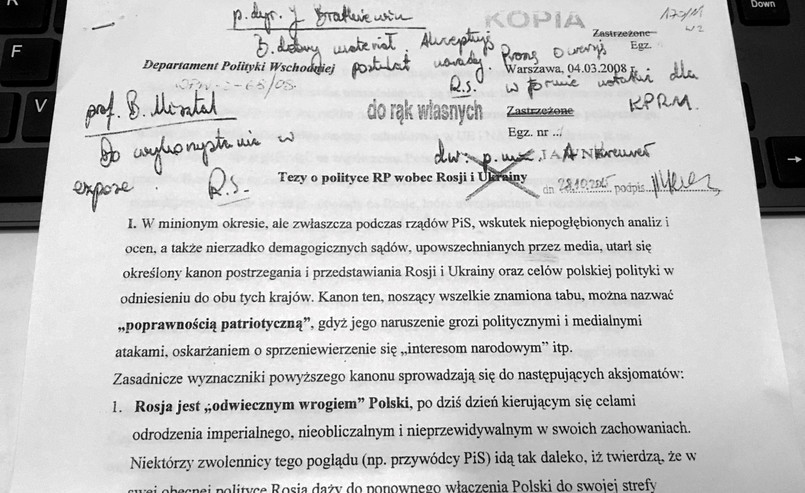 p. dyr. J. Bratkiewicz
KOPIA
B. dobry materiał. Akceptuję
Zastrzeżone
Egz.
Departament Polityki Wschodniej
postulat narady. Proszę o wersję
Warszawa, 04.03.2008 r.
R.S.
w formie notatki dla
KPRM.
prof. B. Misztal
do rąk własnych
Zastrzeżone
Egz. nr ../
Do wykorzystania w
expose.
R.S.
dw: p. min. JAAN
Tezy o polityce RP wobec Rosji i Ukrainy
dn 28.10.2015 podpis
I. W minionym okresie, ale zwłaszcza podczas rządów PiS, wskutek niepogłębionych analiz i
ocen, a także nierzadko demagogicznych sądów, upowszechnianych przez media, utarł się
określony kanon postrzegania i przedstawiania Rosji i Ukrainy oraz celów polskiej polityki w
odniesieniu do obu tych krajów. Kanon ten, noszący wszelkie znamiona tabu, można nazwać
„poprawnością patriotyczną”, gdyż jego naruszenie grozi politycznymi i medialnymi
atakami, oskarżaniem o sprzeniewierzenie się „interesom narodowym” itp.
Zasadnicze wyznaczniki powyższego kanonu sprowadzają się do następujących aksjomatów:
1. Rosja jest „odwiecznym wrogiem” Polski, po dziś dzień kierującym się celami
odrodzenia imperialnego, nieobliczalnym i nieprzewidywalnym w swoich zachowaniach.
Niektórzy zwolennicy tego poglądu (np. przywódcy PiS) idą tak daleko, iż twierdzą, że w
swej obecnej polityce Rosja dąży do ponownego włączenia Polski do swojej strefy
F
V
Down